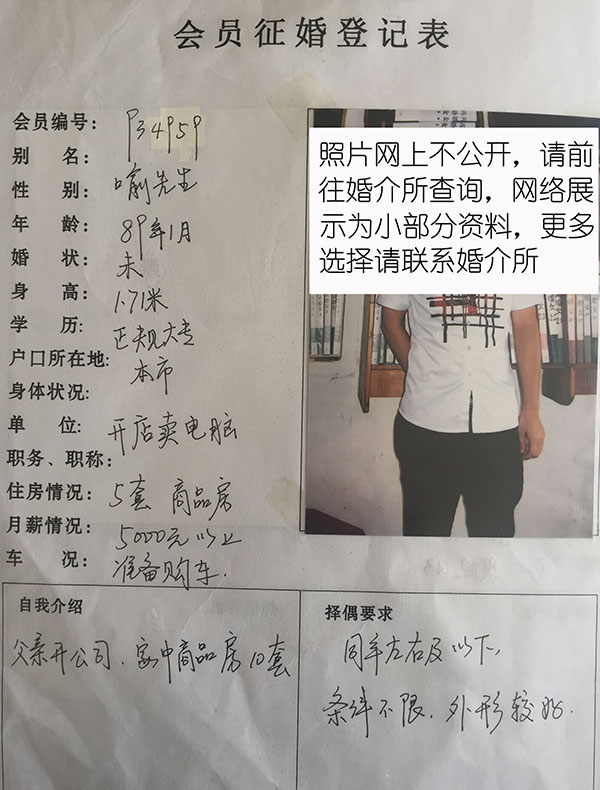 会员征婚登记表
会员编号: P34959
别 名: 喻先生
性 别:
年 龄: 89年1月
婚 状: 未
身 高: 1.71米
学 历: 正规大专
户口所在地: 本市
身体状况:
单 位: 开店卖电脑
职务、职称:
住房情况: 5套 商品房
月薪情况: 5000元以上
车 况: 准备购车.
照片网上不公开，请前
往婚介所查询，网络展
示为小部分资料，更多
选择请联系婚介所
自我介绍
父亲开公司、家中商品房10套
择偶要求
同年左右及以下,
条件不限.外形较好.